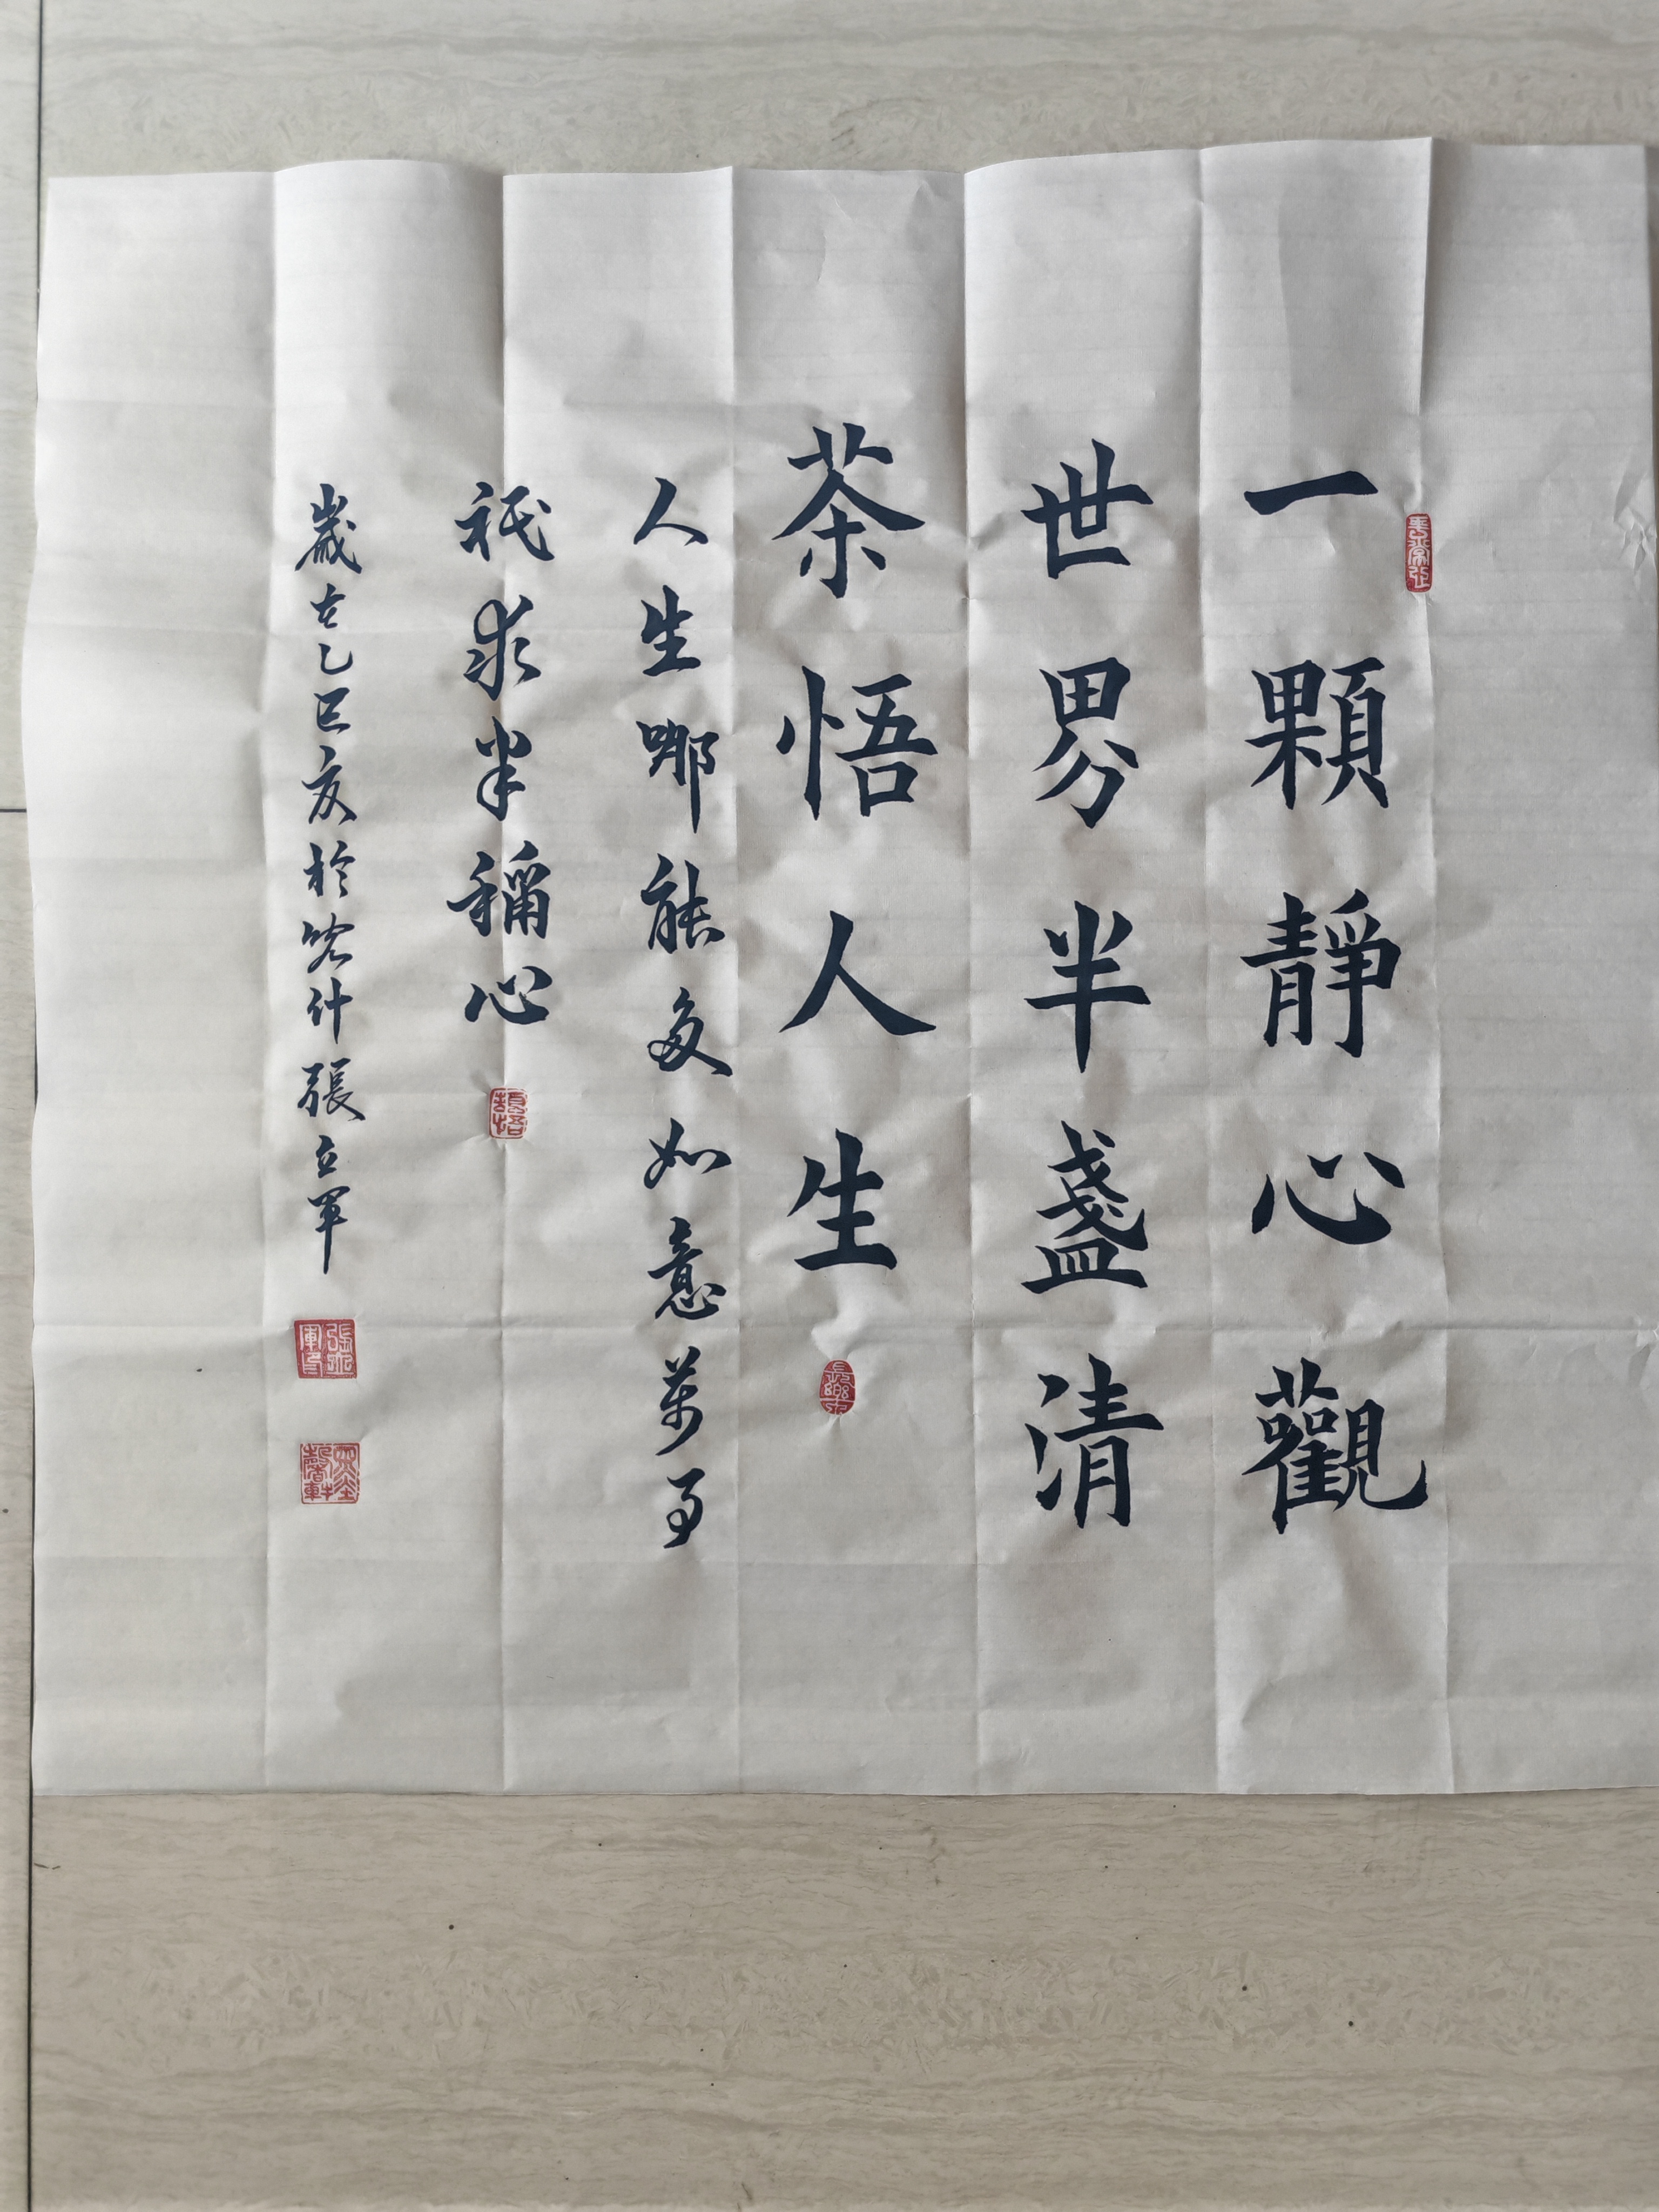 一顆靜心觀
世界半盞清
茶悟人生
人生哪能多如意萬事
祇求半稱心
歲在乙巳夏於喀什張立軍